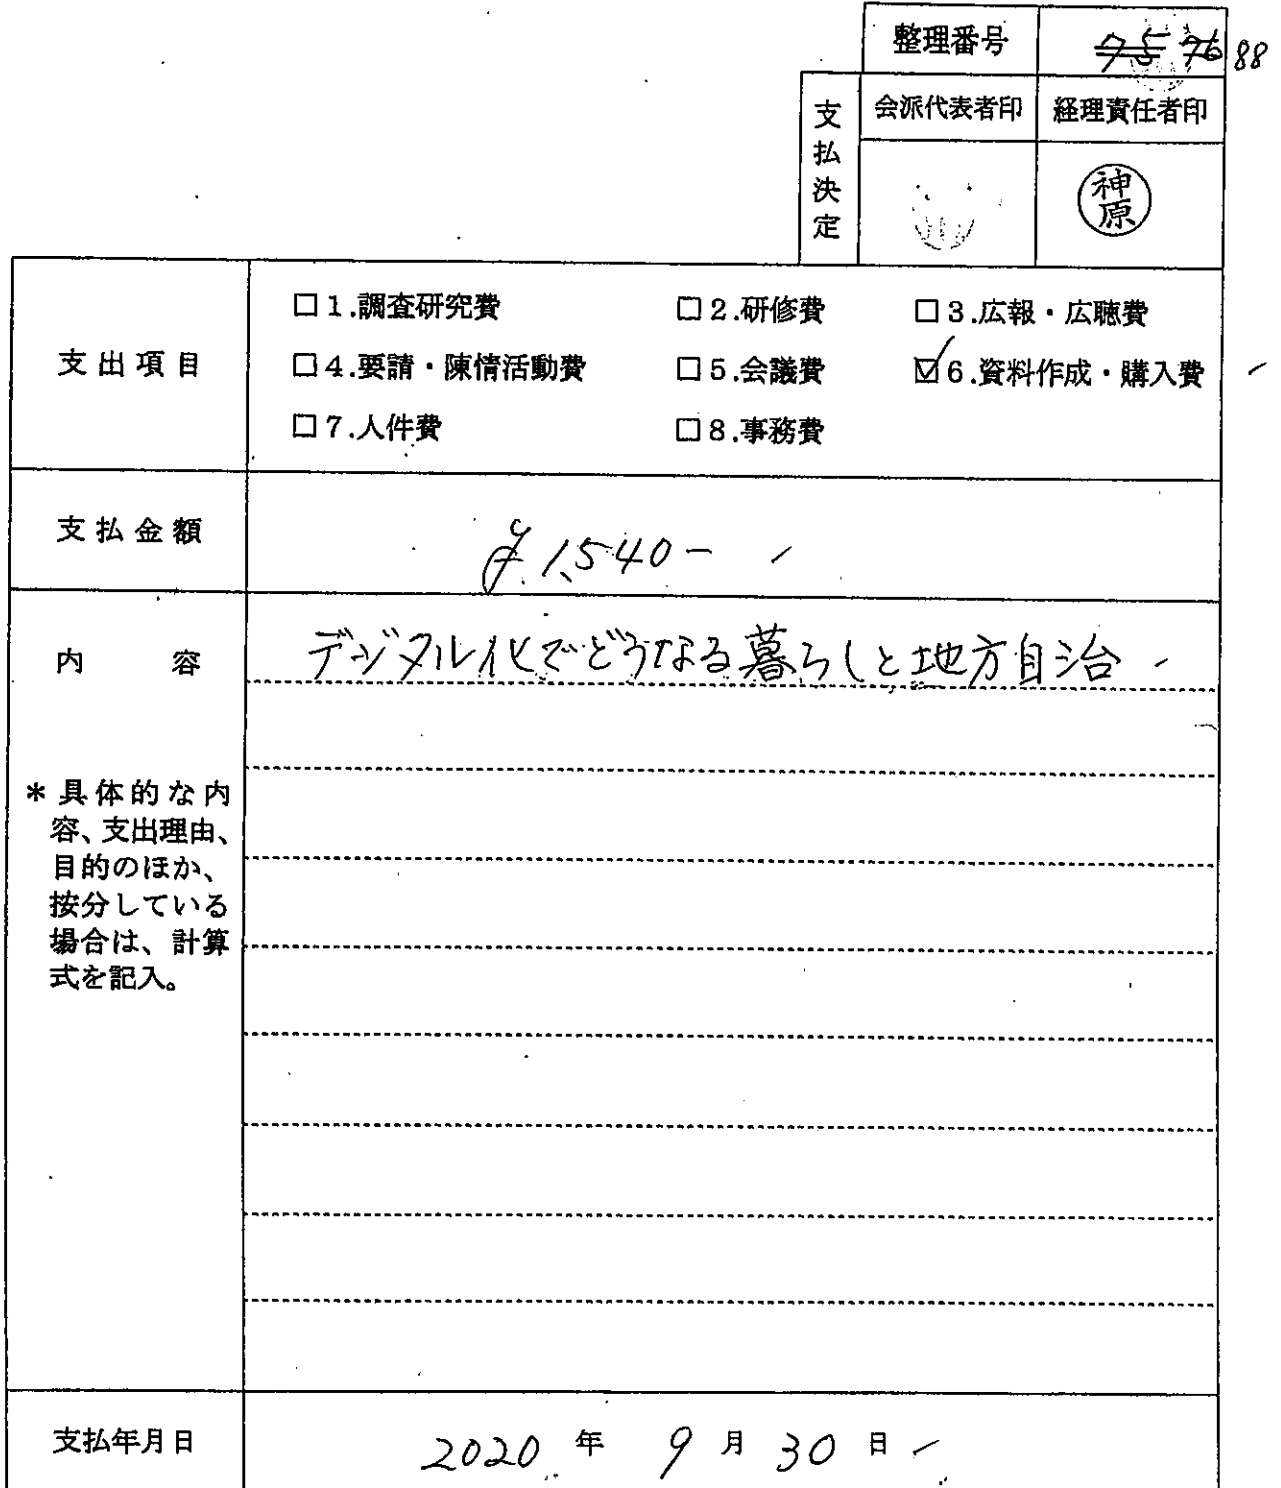 整理番号 75 76 88
支払決定
会派代表者印 経理責任者印
神原
支出項目
□1.調査研究費 □2.研修費 □3.広報・広聴費
□4.要請・陳情活動費 □5.会議費 ☑6.資料作成・購入費
□7.人件費 □8.事務費
支払金額 ¥1,540-
内容 デジタル化でどうなる暮らしと地方自治
*具体的な内
容、支出理由、
目的のほか、
按分している
場合は、計算
式を記入。
支払年月日 2020年9月30日